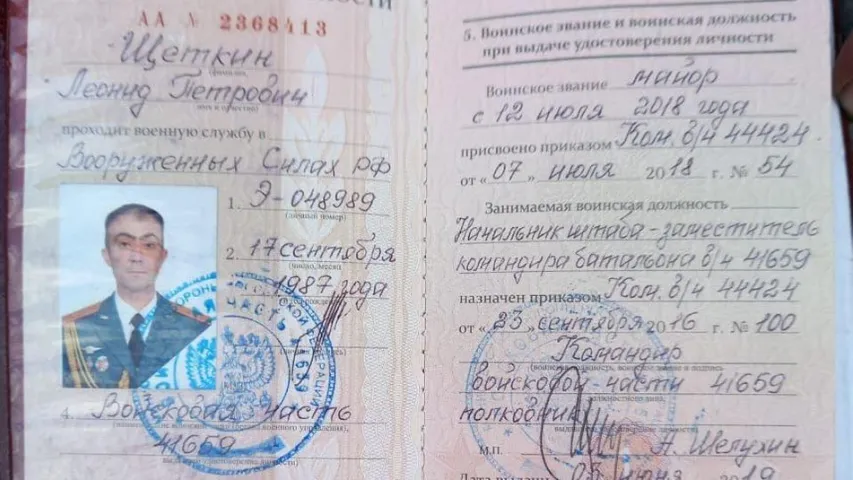 НОСТИ
АА № 2368413
Щеткин
Леонид Петрович
имя и отчество)
проходит военную службу в
Вооруженных Силах РФ
1. Э-048989
(личный номер)
2. 17 сентября
(число, месяц
1987 года
4. Войсковая часть
41659
5. Воинское звание и воинская должность
при выдаче удостоверения личности
Воинское звание майор
с 12 июля 2018 года
присвоено приказом Ком. в/ч 44424
от «07» июля 2018 г. № 54
Занимаемая воинская должность
Начальник штаба-заместитель
командира батальона в/ч 41659
назначен приказом Ком. в/ч 44424
от «23» сентября 2016 г. № 100
Командир
войсковой части 41659
полковник
А. Шелухин
М.П.
Дата выдачи 05 июня 2019